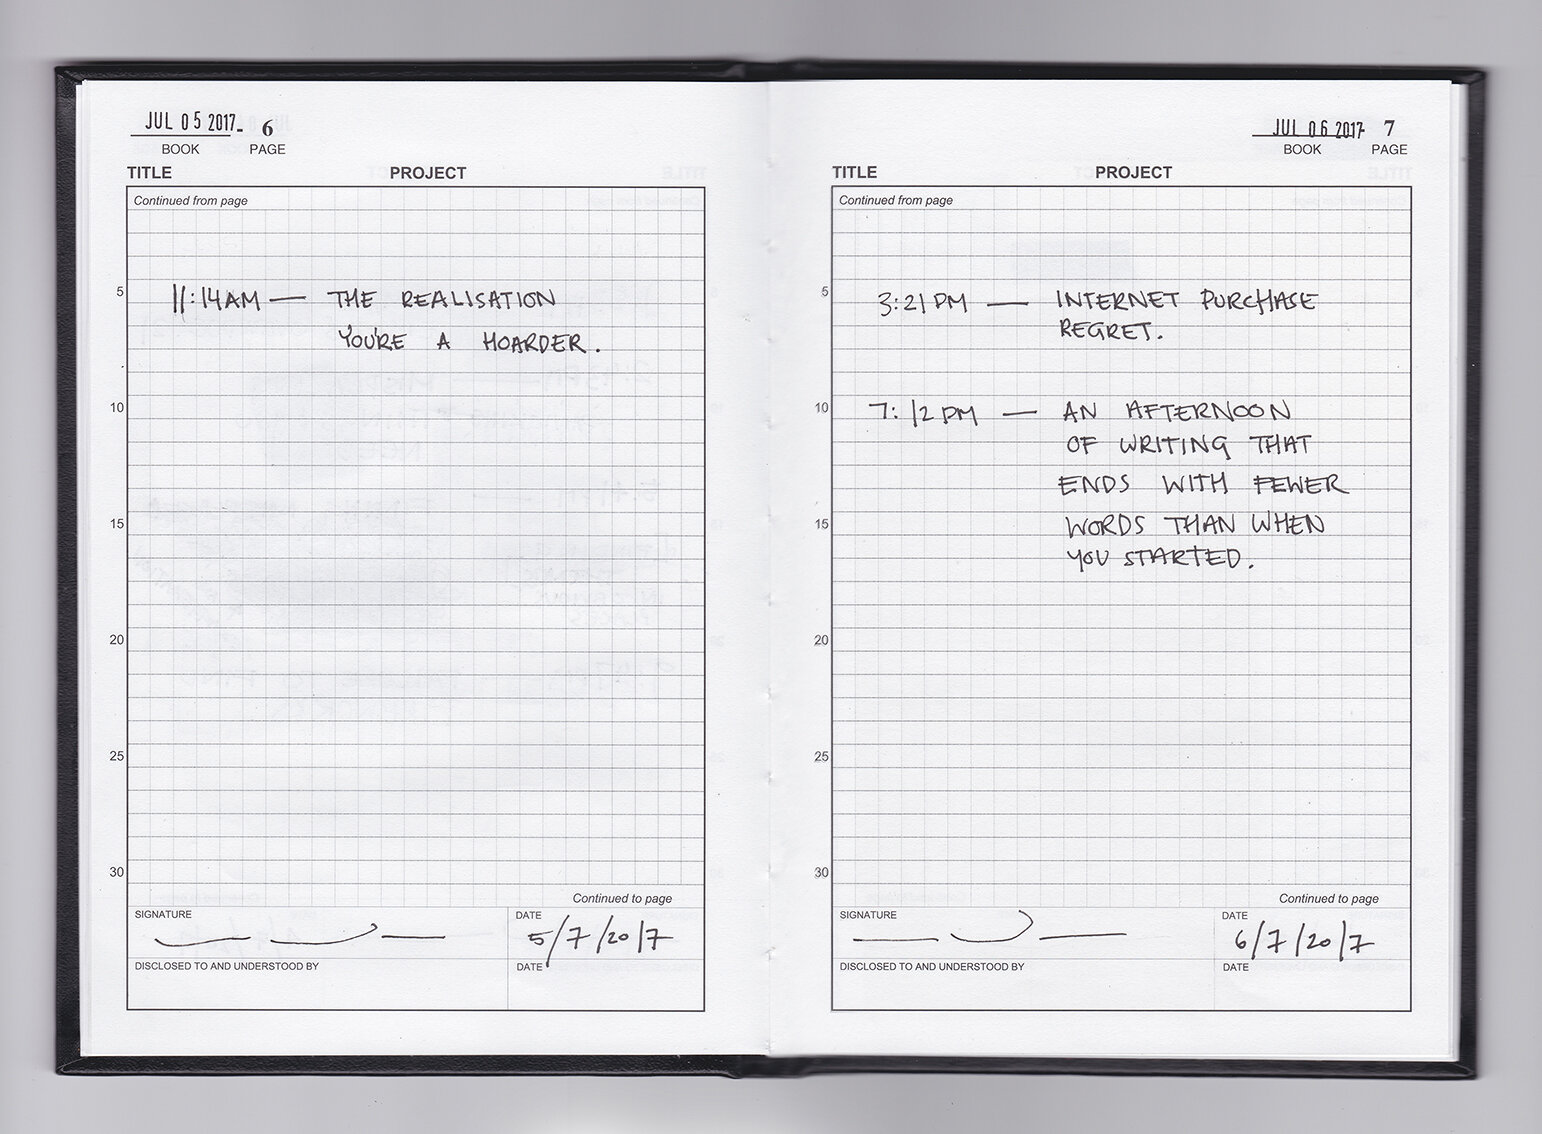 JUL 05 2017- 6
BOOK PAGE
TITLE PROJECT
Continued from page
5
11:14AM — THE REALISATION
YOU'RE A HOARDER.
10
15
20
25
30
Continued to page
SIGNATURE DATE
5/7/2017
DISCLOSED TO AND UNDERSTOOD BY DATE
JUL 06 2017- 7
BOOK PAGE
TITLE PROJECT
Continued from page
5
3:21PM — INTERNET PURCHASE
REGRET.
10
7:12PM — AN AFTERNOON
OF WRITING THAT
ENDS WITH FEWER
15
WORDS THAN WHEN
YOU STARTED.
20
25
30
Continued to page
SIGNATURE DATE
6/7/2017
DISCLOSED TO AND UNDERSTOOD BY DATE